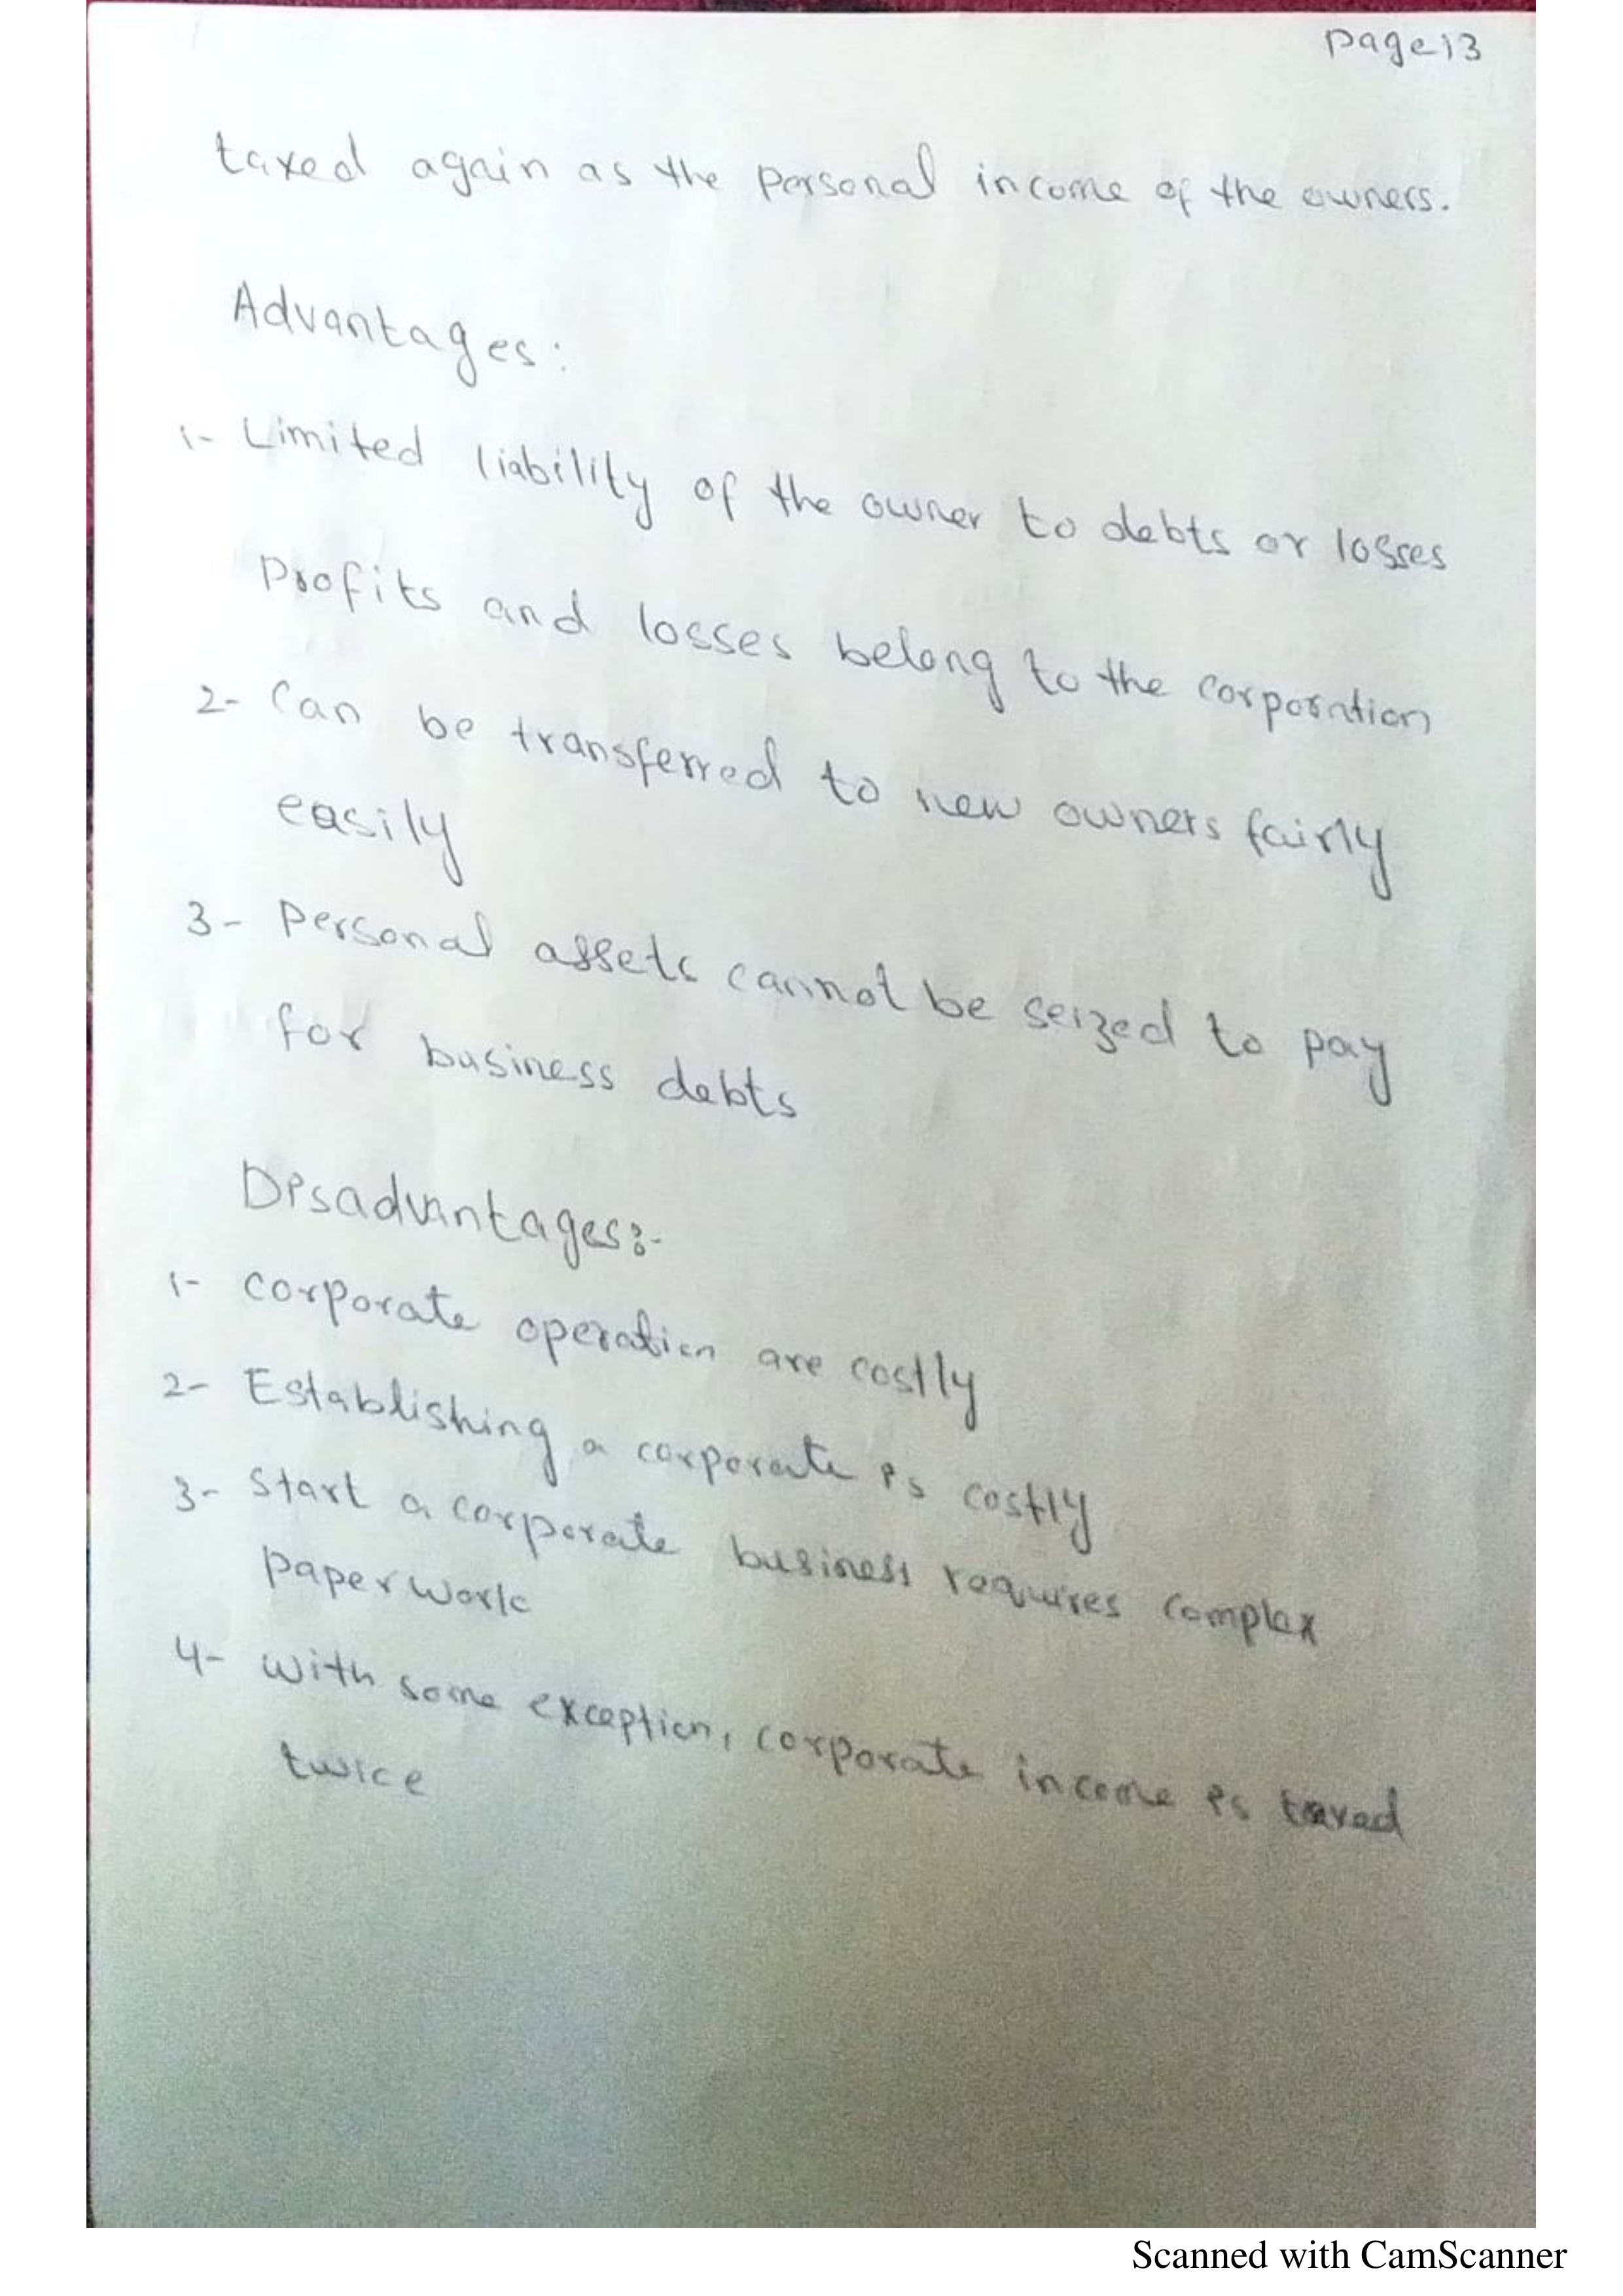 page 13
taxed again as the personal income of the owners.
Advantages:
1- Limited liability of the owner to debts or losses
Profits and losses belong to the corporation
2- Can be transferred to new owners fairly
easily
3- Personal assets cannot be seized to pay
for business debts
Disadvantages:-
1- corporate operation are costly
2- Establishing a corporate is costly
3- Start a corporate business requires complex
paperwork
4- with some exception, corporate income is taxed
twice
Scanned with CamScanner